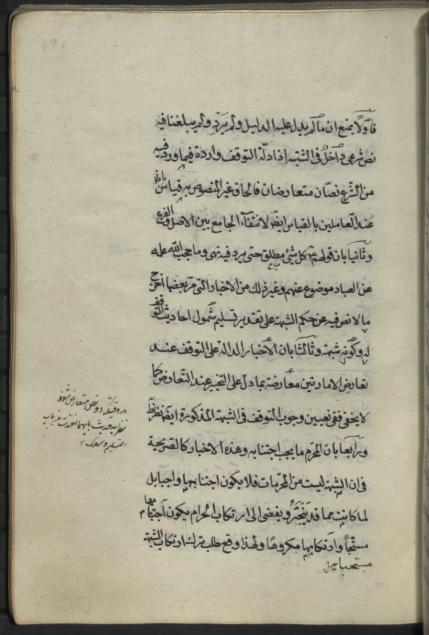 فاولا بمنع ان ما لم يدل عليه الدليل ولم يرد ولم يبلغنا فيه
نص شرعي داخل في الشبهة اذ ادلة التوقف واردة فيما ورد فيه
من الشرع نصان متعارضان فالحاق غير المنصوص به قياس باطل
عند العاملين بالقياس ايضا لانتفاء الجامع بين الاصل والفرع
وثانيا بان قولهم ع كل شيء مطلق حتى يرد فيه نهي وما حجب الله علمه
عن العباد موضوع عنهم وغير ذلك من الاخبار التي مر بعضها اخرج
ما لا نص فيه عن حكم الشبهة على تقدير تسليم شمول احاديث التوقف
له وكونه شبهة وثالثا بان الاخبار الدالة على التوقف عند
تعارض الامارتين معارضة بما دل على التخيير عند التعارض كما
لا يخفى ففي تعيين وجوب التوقف في الشبهة المذكورة ايضا نظر
ورابعا بان المحرم ما يجب اجتنابه وهذه الاخبار كالصريحة
في ان الشبهة ليست من المحرمات فلا يكون اجتنابها واجبا بل
لما كانت مما قد ينجر ويفضي الى ارتكاب الحرام يكون اجتنابها
مستحبا وارتكابها مكروها ولهذا وقع طلب ترك ارتكاب الشبهة
مستحبا بل